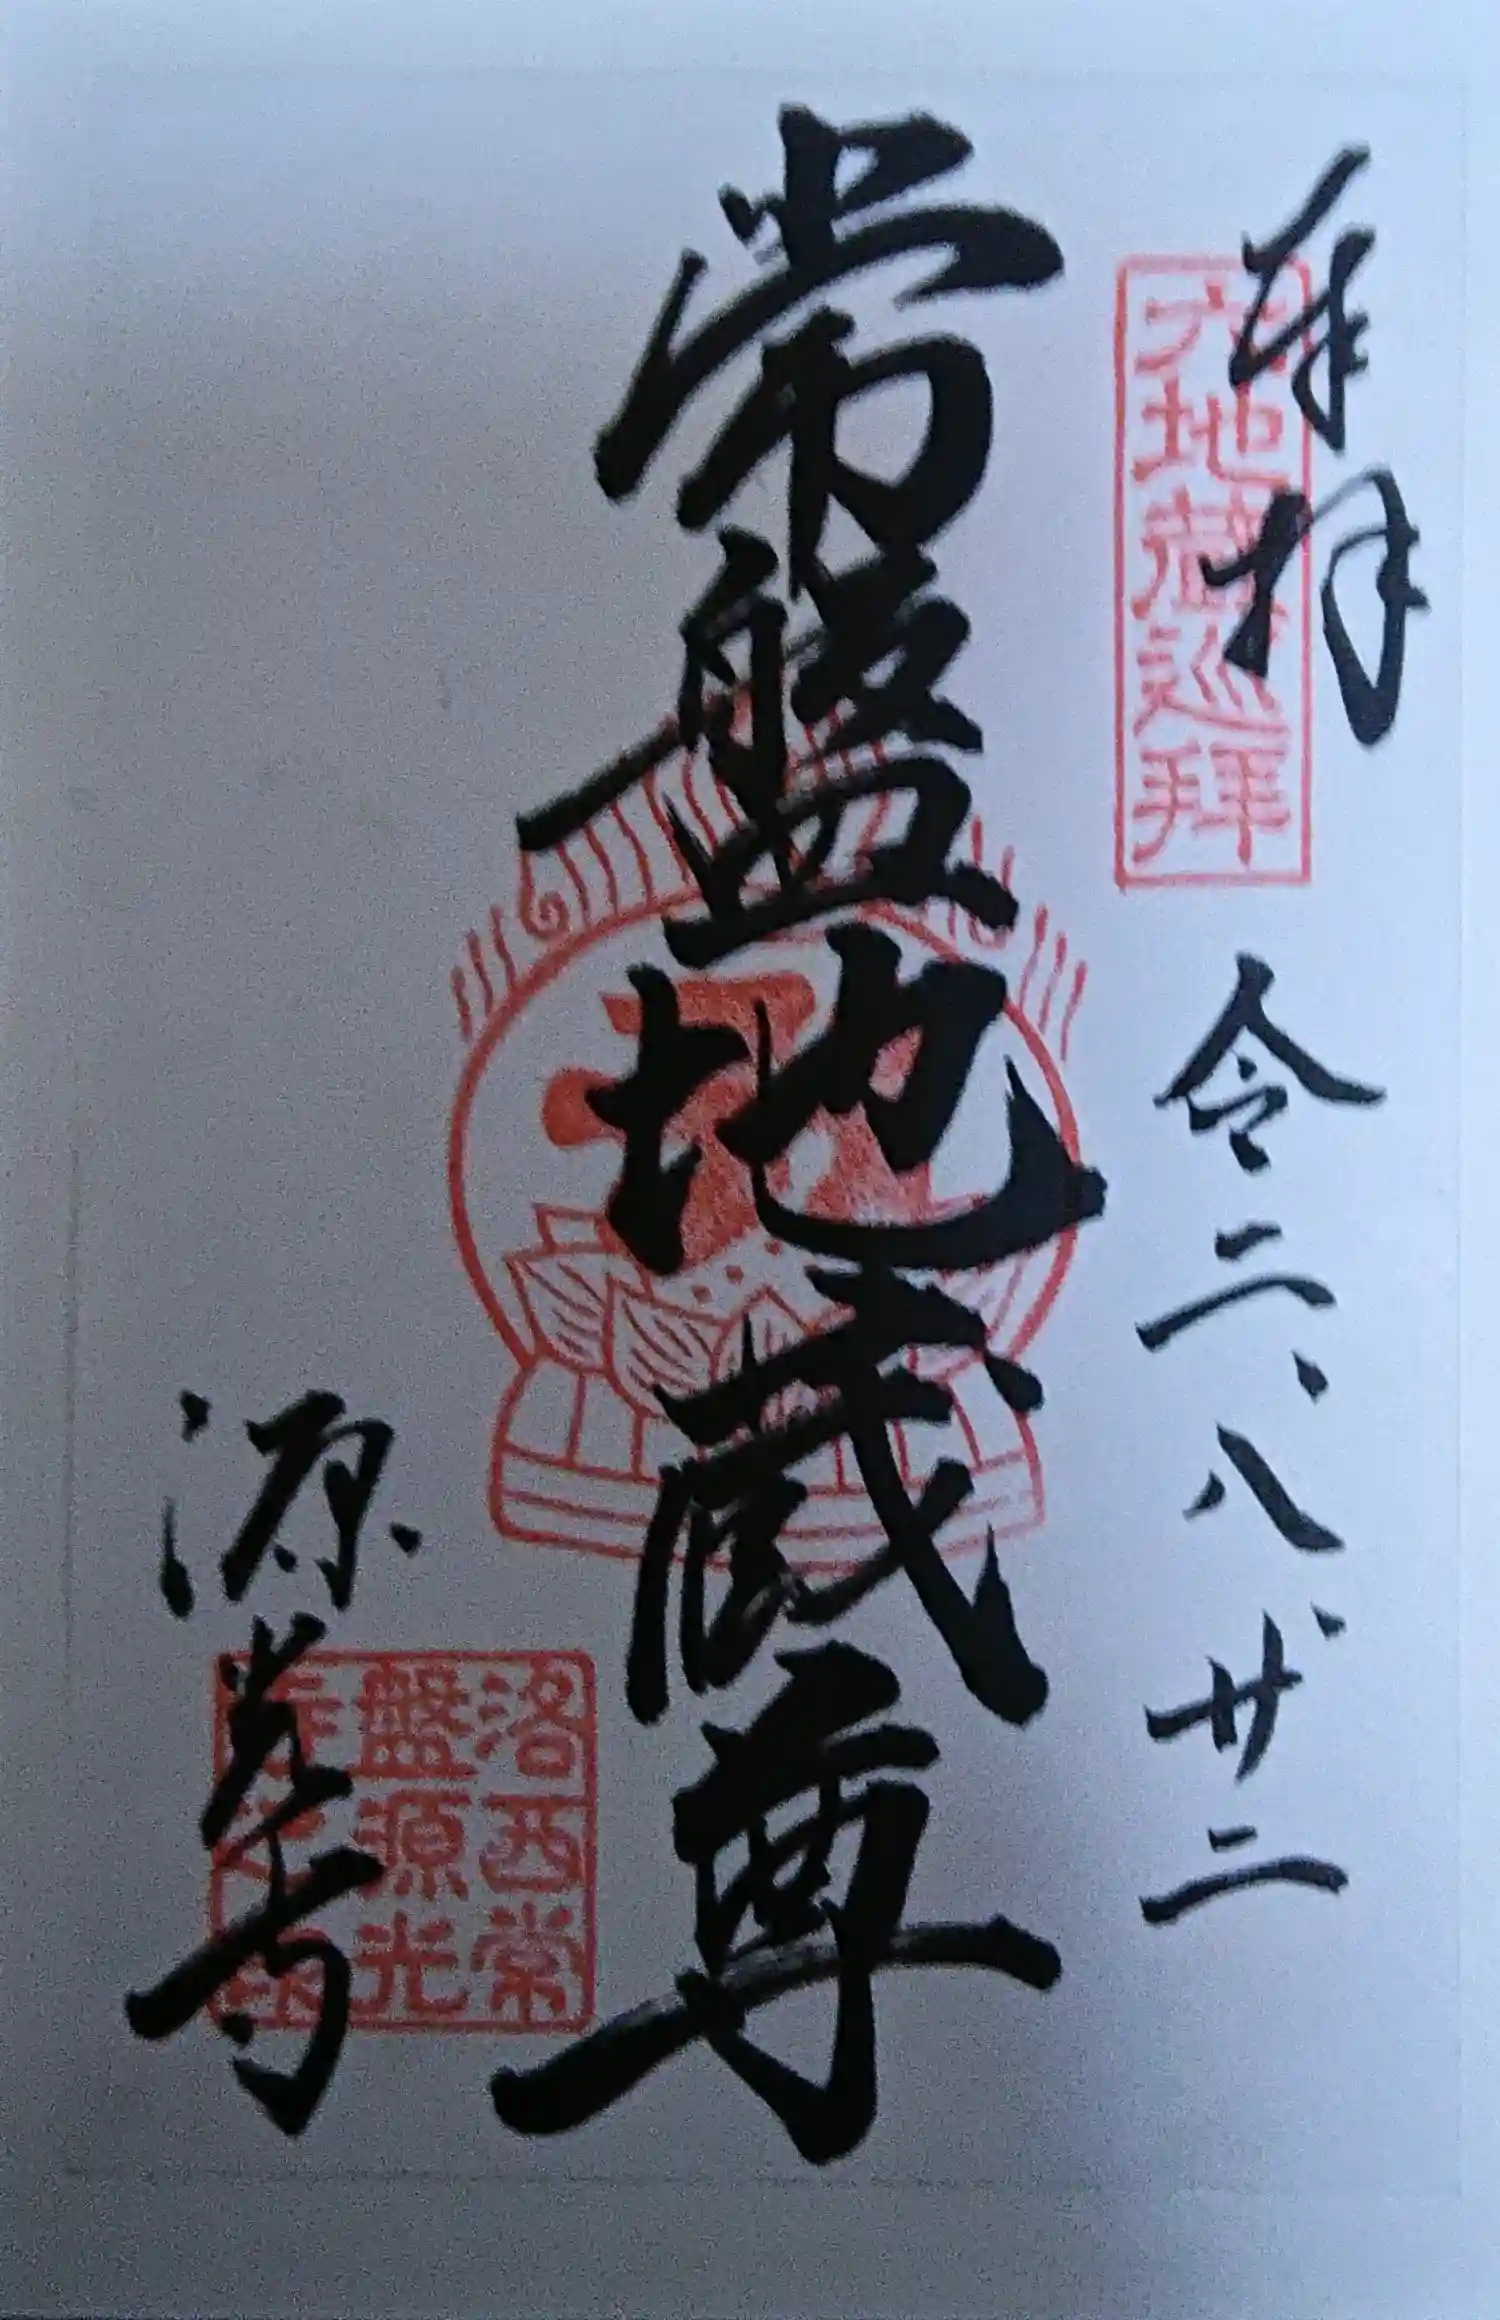 奉拝
六地蔵巡拝
令二、八、廿二
常盤地蔵尊
源光寺
洛西常
盤源光
寺之印